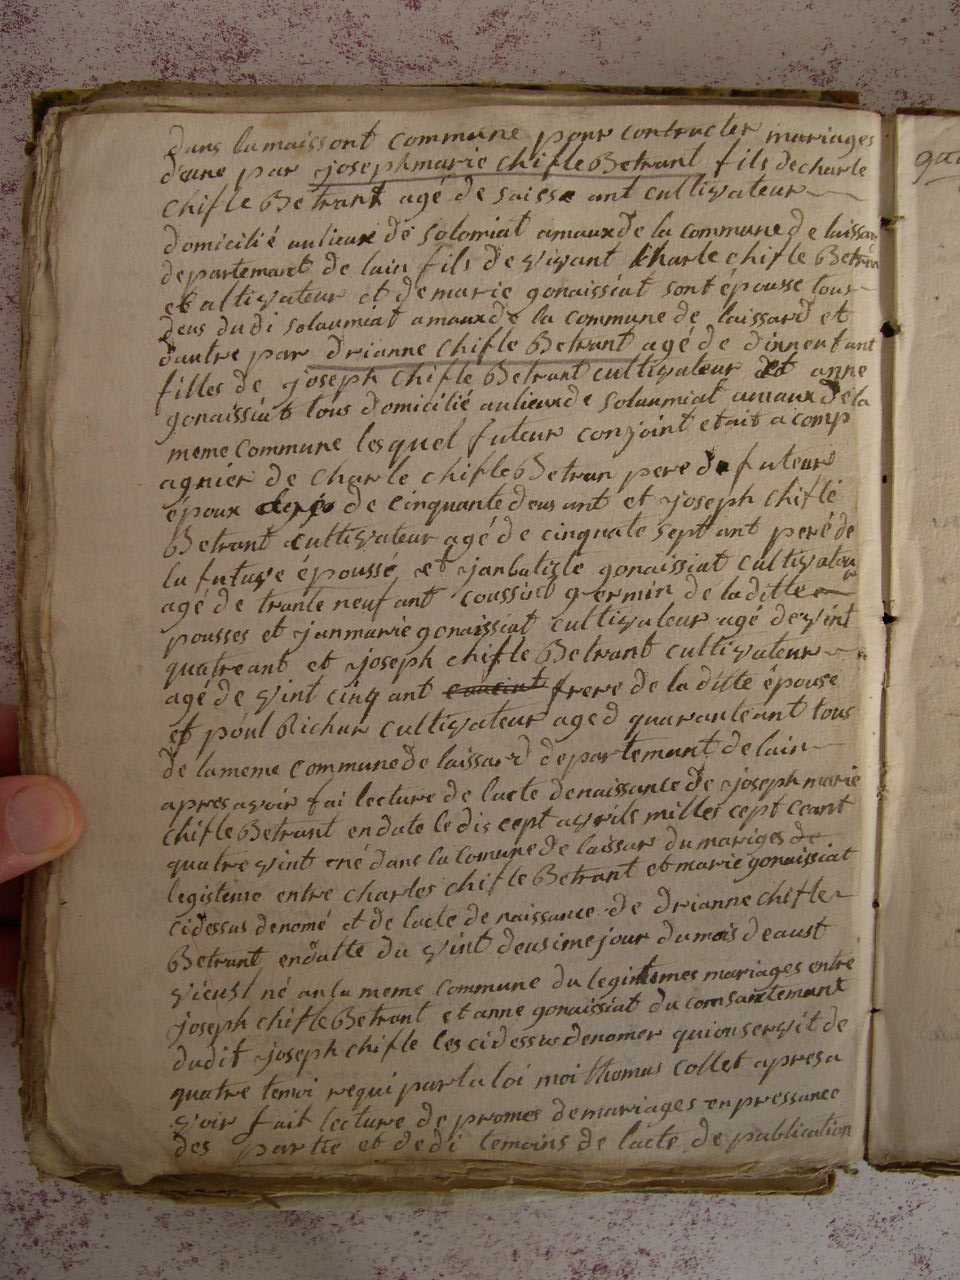 dans la maissont commune pour contracter mariages
d'une par joseph marie chifle Betrant fils de charle
chifle Betrant agé de saisse ant cultivateur
domicilié aulieux de solomiat amaux de la commune de laissar
departemant de lain fils de vivant Charle chifle Betran
et altivateur et de marie gonaissiat sont épousse tous
deus dudi solaumiat amaux de la commune de laissard et
dautre par drianne chifle Betrant agé de dinneut ant
filles de joseph chifle Betrant cultivateur et anne
gonaissiat tous domicilié aulieux de solaumiat amaux de la
meme commune lesquel futeur conjoint etait acomp
agnier de charle chifle Betran pere de futeur
époux de cinquante deus ant et joseph chifle
Betrant cultivateur agé de cinqnate sept ant peré de
la future époussé et janbatiste gonaissiat cultivateur
agé de trante neuf ant coussint germin de laditte
pousses et janmarie gonaissiat cultivateur agé de vint
quatre ant et joseph chifle Betrant cultivateur
agé de vint cinq ant frere de la ditte épouse
et poul Richar cultivateur age d quarante ant tous
de la meme commune de laissard departemant de lain
apres avoir fai lecture de lacte denaissance de joseph marie
chifle Betrant endate le dis cept avrils milles cept ceant
quatre vint né dans la comune de laissar du mariges de
legisteme entre charles chifle Betrant et marie gonaissiat
cidessus denomé et de lacte de naissance de drianne chifle
Betrant endatte du vint deusime jour du mois deaust
né an la meme commune du legintemes mariages entre
joseph chifle Betrant et anne gonaissiat du consantemant
dudit joseph chifle les cidessus denomer quion servit de
quatre temoi requi par la loi moi thomas collet apres a
voir fait lecture de promes demariages en pressance
des partie et dedi temoins de lacte de publication